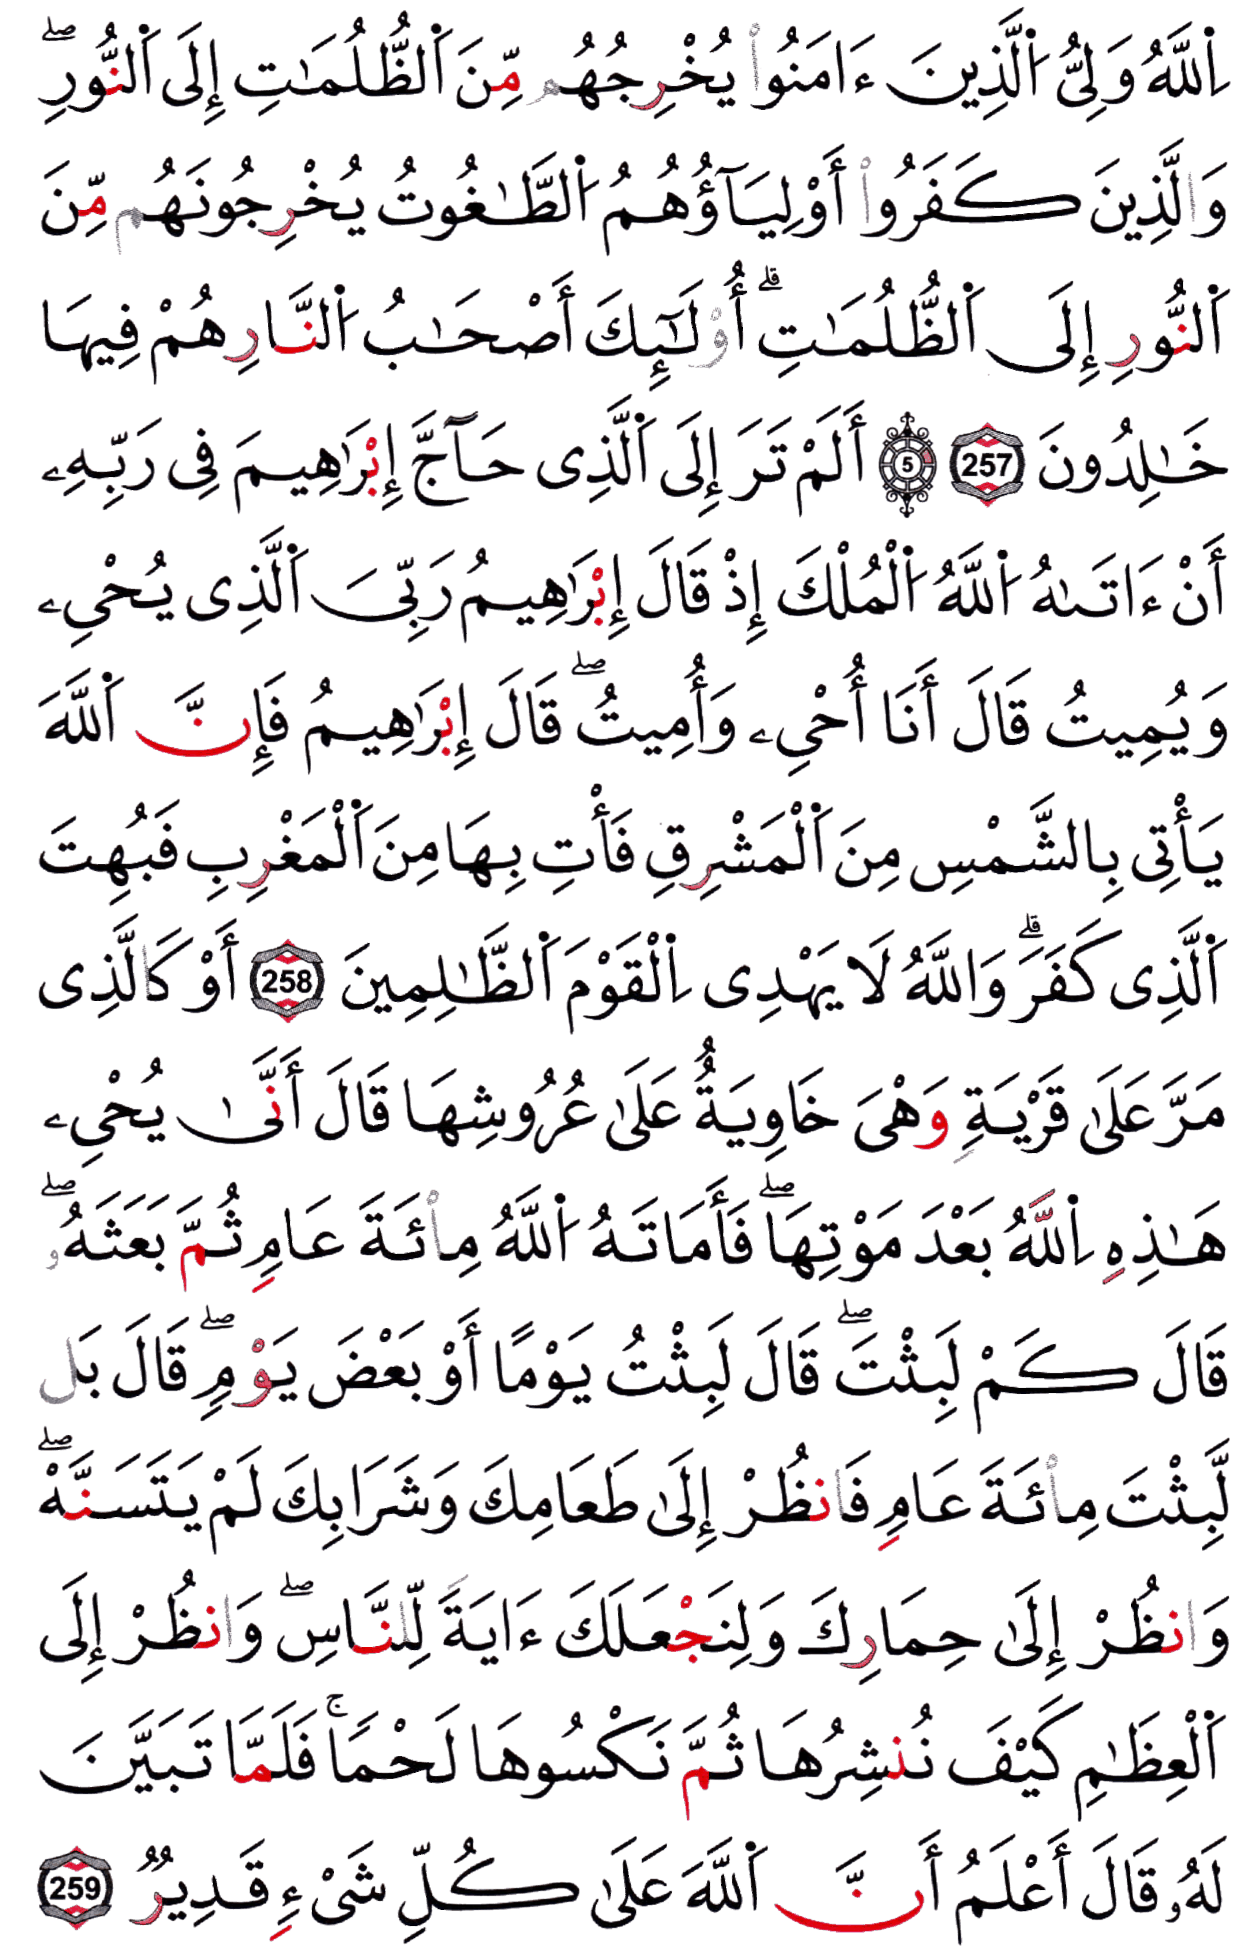 اِ۬للَّهُ وَلِىُّ اُ۬لَّذِينَ ءَامَنُواْ يُخْرِجُهُم مِّنَ اَ۬لظُّلُمَٰتِ إِلَى اَ۬لنُّورِۖ
وَالَّذِينَ كَفَرُواْ أَوْلِيَآؤُهُمُ اُ۬لطَّٰغُوتُ يُخْرِجُونَهُم مِّنَ
اَ۬لنُّورِ إِلَى اَ۬لظُّلُمَٰتِۗ أُوْلَٰٓئِكَ أَصْحَٰبُ اُ۬لنَّارِ هُمْ فِيهَا
خَٰلِدُونَ 257 5 أَلَمْ تَرَ إِلَى اَ۬لَّذِى حَآجَّ إِبْرَٰهِيمَ فِى رَبِّهِۦ
أَنْ ءَاتَىٰهُ اُ۬للَّهُ اُ۬لْمُلْكَ إِذْ قَالَ إِبْرَٰهِيمُ رَبِّىَ اَ۬لَّذِى يُحْىِۦ
وَيُمِيتُ قَالَ أَنَا أُحْىِۦ وَأُمِيتُۖ قَالَ إِبْرَٰهِيمُ فَإِنَّ اَ۬للَّهَ
يَأْتِى بِالشَّمْسِ مِنَ اَ۬لْمَشْرِقِ فَأْتِ بِهَا مِنَ اَ۬لْمَغْرِبِ فَبُهِتَ
اَ۬لَّذِى كَفَرَۗ وَاللَّهُ لَا يَهْدِى اِ۬لْقَوْمَ اَ۬لظَّٰلِمِينَ 258 أَوْ كَالَّذِى
مَرَّ عَلَىٰ قَرْيَةٍ وَهْىَ خَاوِيَةٌ عَلَىٰ عُرُوشِهَا قَالَ أَنَّىٰ يُحْىِۦ
هَٰذِهِ اِ۬للَّهُ بَعْدَ مَوْتِهَاۖ فَأَمَاتَهُ اُ۬للَّهُ مِاْئَةَ عَامٍ ثُمَّ بَعَثَهُۥۖ
قَالَ كَمْ لَبِثْتَۖ قَالَ لَبِثْتُ يَوْمًا أَوْ بَعْضَ يَوْمٍۖ قَالَ بَل
لَّبِثْتَ مِاْئَةَ عَامٍ فَانظُرْ إِلَىٰ طَعَامِكَ وَشَرَابِكَ لَمْ يَتَسَنَّهْۖ
وَانظُرْ إِلَىٰ حِمَارِكَ وَلِنَجْعَلَكَ ءَايَةً لِّلنَّاسِۖ وَانظُرْ إِلَى
اَ۬لْعِظَٰمِ كَيْفَ نُنشِرُهَا ثُمَّ نَكْسُوهَا لَحْمًاۚ فَلَمَّا تَبَيَّنَ
لَهُۥ قَالَ أَعْلَمُ أَنَّ اَ۬للَّهَ عَلَىٰ كُلِّ شَىْءٍ قَدِيرٌ 259